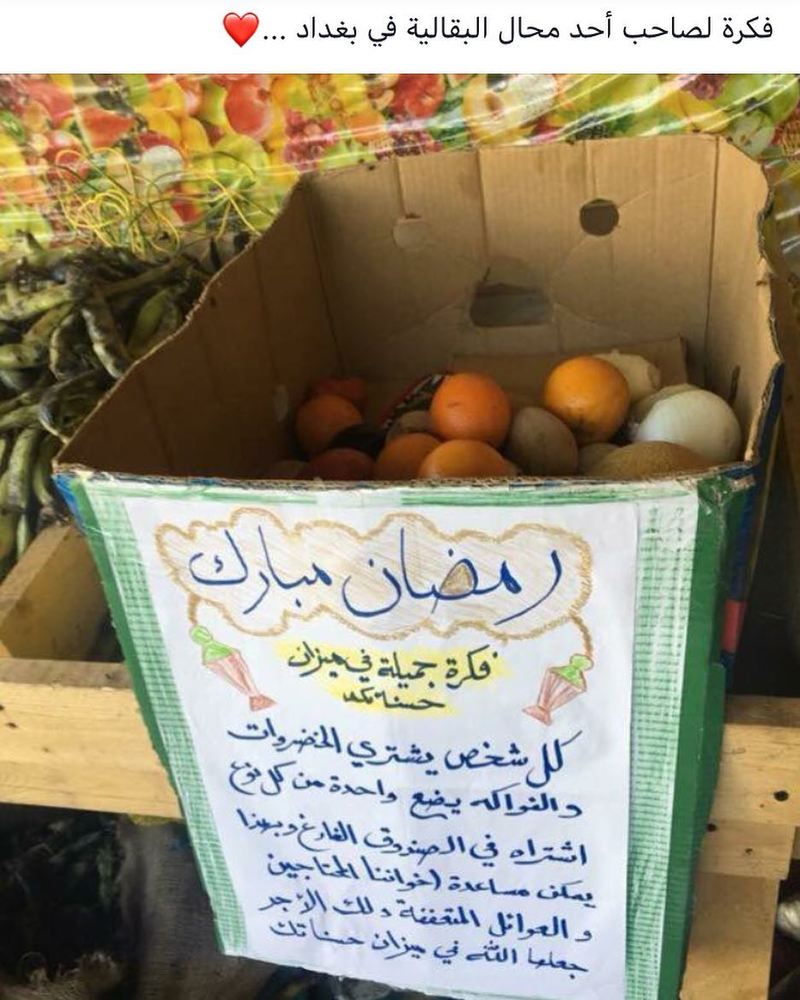 فكرة لصاحب أحد محال البقالية في بغداد ...❤️
رمضان مبارك
فكرة جميلة في ميزان
حسناتكم
كل شخص يشتري الخضروات
والفواكه يضع واحدة من كل نوع
اشتراه في الصندوق الفارغ وبهذا
يمكن مساعدة إخواننا المحتاجين
و العوائل المتعففة ولك الأجر
جعلها الله في ميزان حسناتك